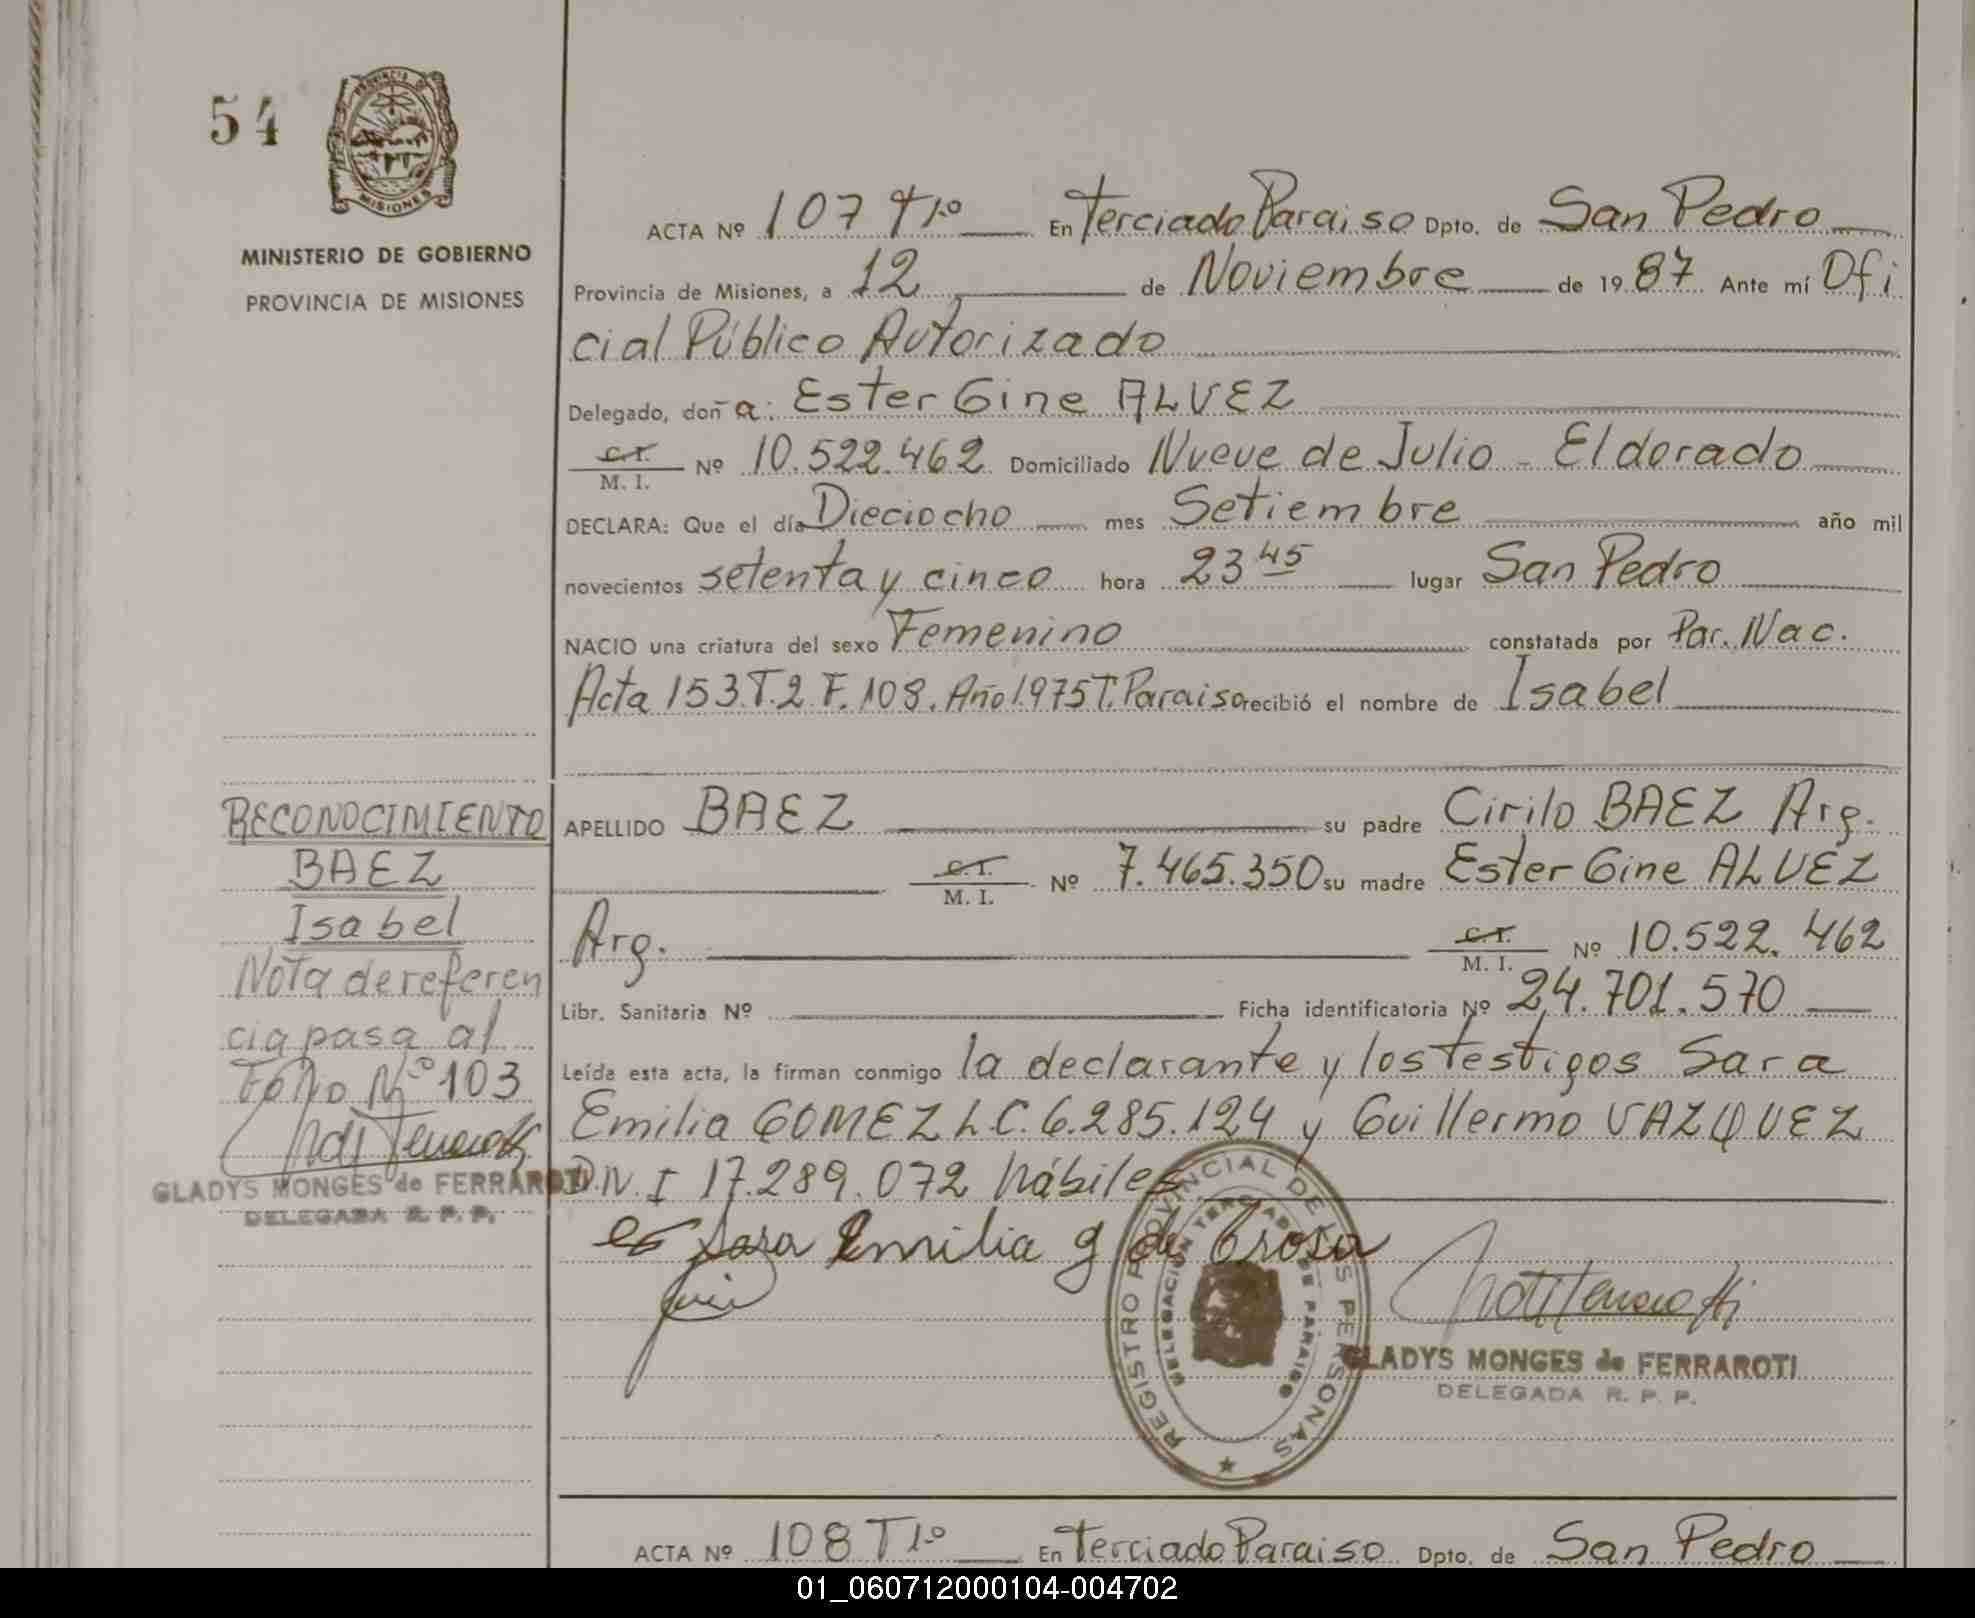 54
PROVINCIA DE
MISIONES
MINISTERIO DE GOBIERNO
PROVINCIA DE MISIONES
ACTA Nº 107 T1º En Terciado Paraiso Dpto. de San Pedro
Provincia de Misiones, a 12 de Noviembre de 1987 Ante mí Ofi
cial Público Autorizado
Delegado, doña: Ester Gine ALVEZ
C.I. M. I. Nº 10.522.462 Domiciliado Nueve de Julio - Eldorado
DECLARA: Que el día Dieciocho mes Setiembre año mil
novecientos setenta y cinco hora 23 45 lugar San Pedro
NACIO una criatura del sexo Femenino constatada por Par. Nac.
Acta 153.T.2 F. 108. Año 1975 T. Paraiso recibió el nombre de Isabel
APELLIDO BAEZ su padre Cirilo BAEZ Arg.
C.I. M. I. Nº 7.465.350 su madre Ester Gine ALVEZ
Arg. C.I. M. I. Nº 10.522.462
Libr. Sanitaria Nº Ficha identificatoria Nº 24.701.570
Leída esta acta, la firman conmigo la declarante y los testigos Sara
Emilia GOMEZ L.C. 6.285.124 y Guillermo VAZQUEZ
D.N.I 17.289.072 hábiles
Sara Emilia g de Trosa
REGISTRO PROVINCIAL DE LAS PERSONAS
DELEGACION TERCIADO DE PARAISO
GLADYS MONGES de FERRAROTI
DELEGADA R. P. P.
RECONOCIMIENTO
BAEZ
Isabel
Nota de referen
cia pasa al
Folio Nº 103
GLADYS MONGES de FERRAROTI
DELEGADA R. P. P.
ACTA Nº 108 T1º En Terciado Paraiso Dpto. de San Pedro
01_060712000104-004702